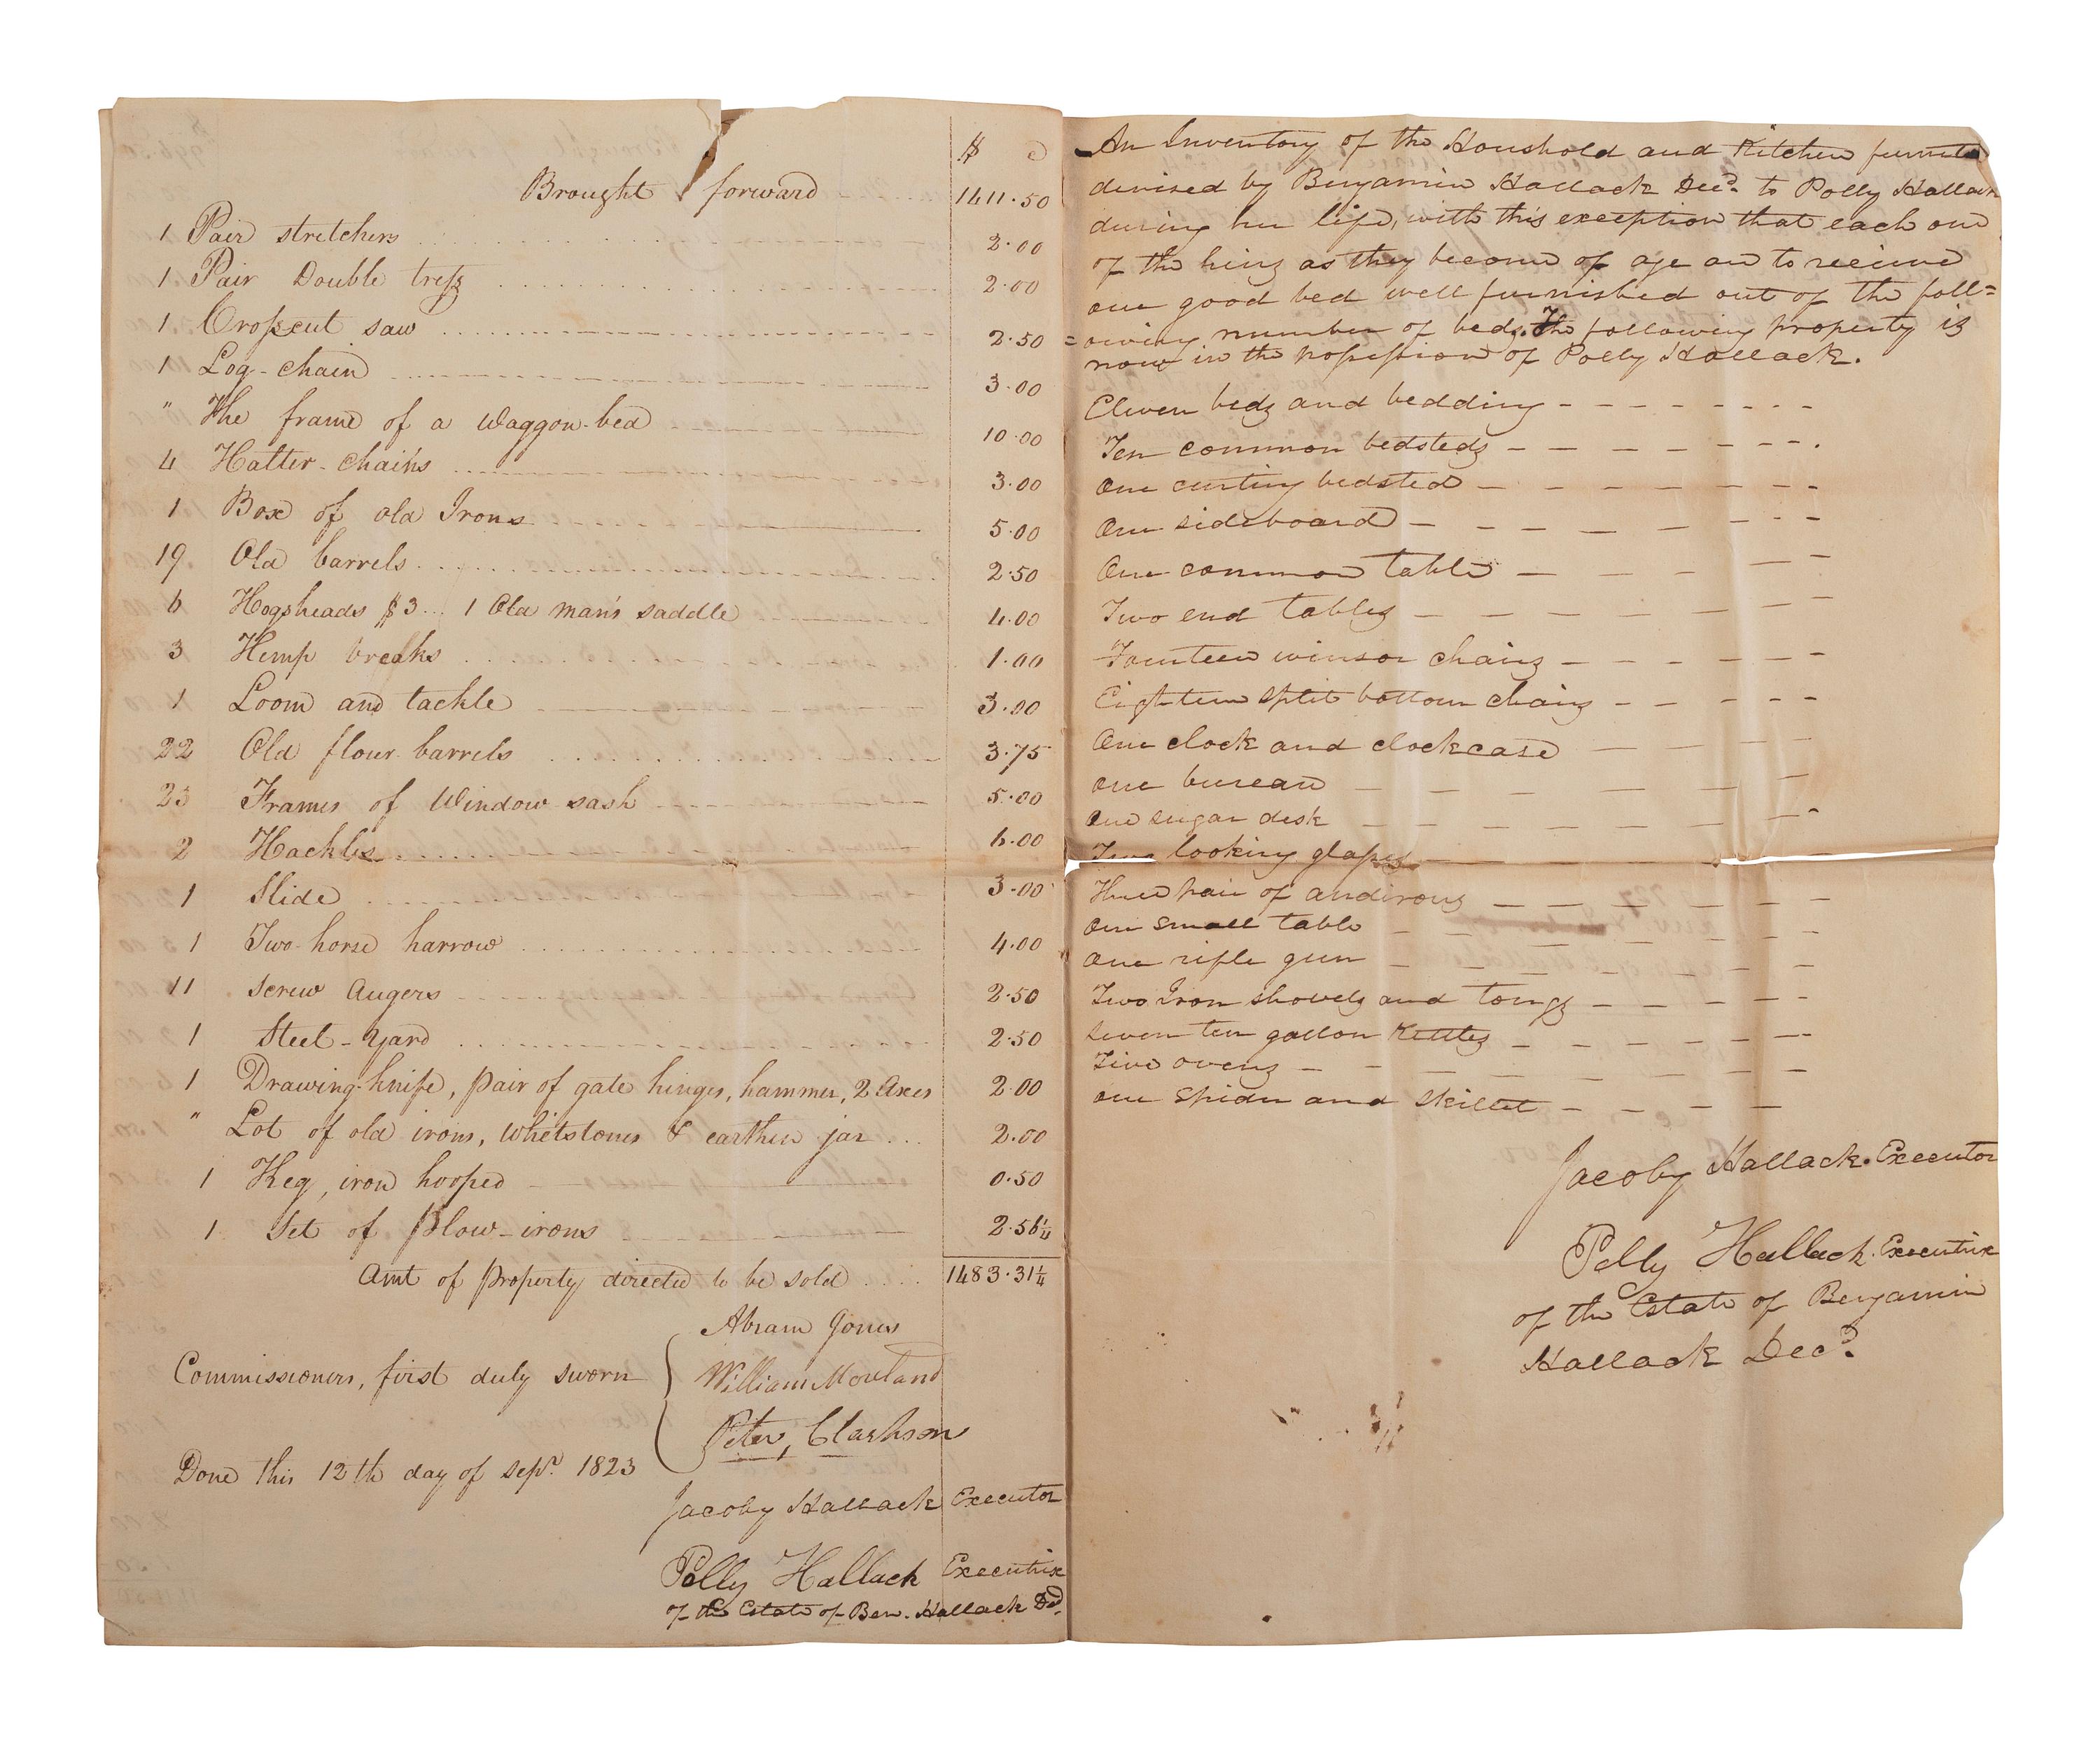 $ c
Brought forward 1411.50
1 Pair stretchers 2.00
1 Pair Double treſs 2.00
1 Croſscut saw 2.50
1 Log-chain 3.00
" The frame of a Waggon-bed 10.00
4 Halter-chains 3.00
1 Box of old Irons 5.00
19 Old barrels 2.50
6 Hogsheads $3... 1 Old man's saddle 4.00
3 Hemp breaks 1.00
1 Loom and tackle 3.00
22 Old flour barrels 3.75
23 Frames of Window sash 5.00
2 Hackles 6.00
1 Slide 3.00
1 Two-horse harrow 4.00
11 Screw Augers 2.50
1 Steel-yard 2.50
1 Drawing-knife, pair of gate hinges, hammer, 2 Axes 2.00
" Lot of old irons, Whetstones & earthen jar 2.00
1 Keg, iron hooped 0.50
1 Set of Plow-irons 2.56¼
Amt of property directed to be sold 1483.31¼
Commissioners, first duly sworn
Abram Jones
William Moreland
Peter Clarkson
Done this 12th day of Sepr. 1823
Jacoby Hallack Executor
Polly Hallack Executrix
of the Estate of Ben. Hallack Decd.
An Inventory of the Houshold and Kitchen furniture
devised by Benjamin Hallack Decd. to Polly Hallack
during her life, with this exception that each one
of the heirs as they become of age are to receive
one good bed well furnished out of the foll=
=owing number of beds. The following property is
now in the poſseſsion of Polly Hallack.
Eleven beds and bedding
Ten common bedsteds
One curting bedsted
One sideboard
One common table
Two end tables
Fourteen winsor chairs
Eighteen split bottom chairs
One clock and clockcase
One bureau
One sugar desk
Two looking glaſses
Three pair of andirons
One small table
One rifle gun
Two Iron shovels and tongs
Seven ten gallon Kettles
Five ovens
One Spider and Skillet
Jacoby Hallack. Executor
Polly Hallack. Executrix
of the Estate of Benjamin
Hallack Decd.